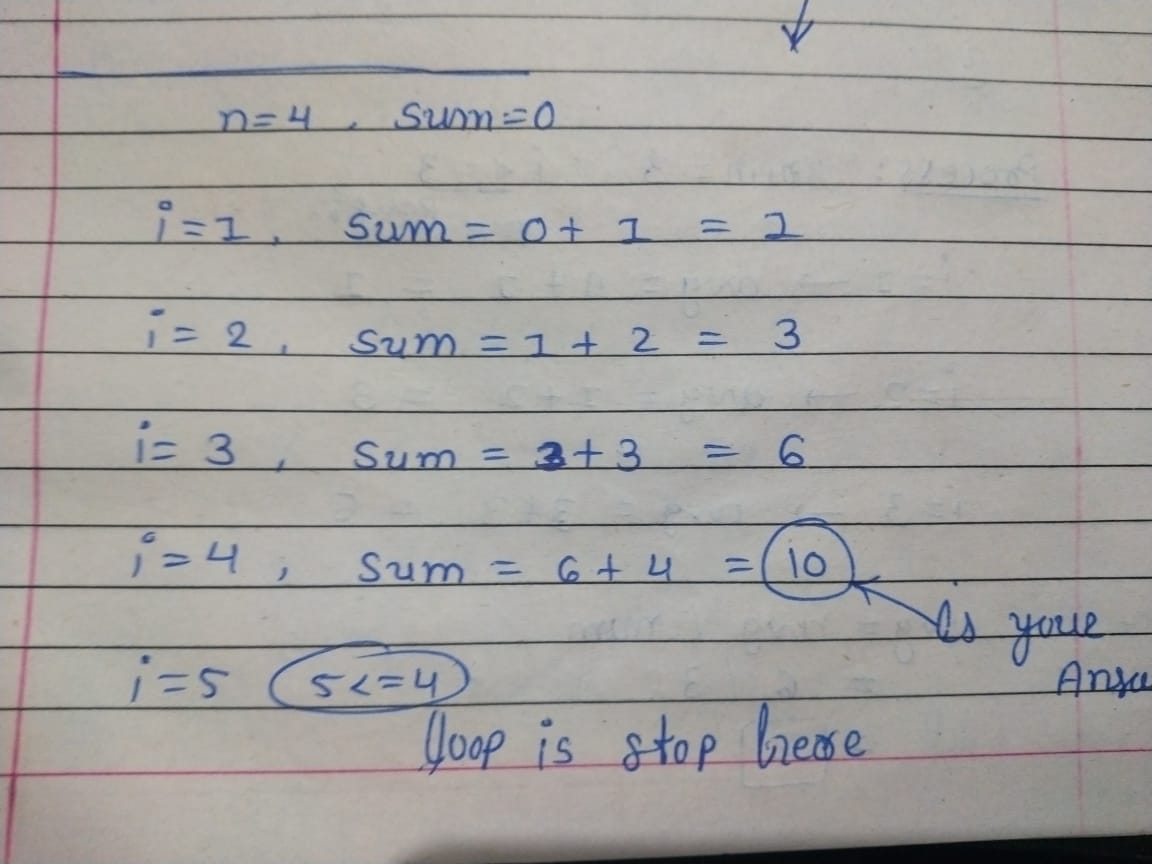 n=4, Sum=0
i=1, Sum = 0+ 1 = 1
i= 2, Sum = 1+ 2 = 3
i= 3, Sum = 3+3 = 6
i=4, Sum = 6+4 = 10
is youe
Answ
i=5 5<=4
loop is stop here